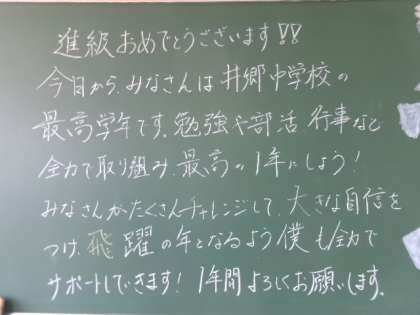 進級おめでとうございます!!
今日から、みなさんは井郷中学校の
最高学年です。勉強や部活、行事など
全力で取り組み、最高の1年にしよう!
みなさんがたくさんチャレンジして、大きな自信を
つけ、飛躍の年となるよう僕も全力で
サポートしていきます! 1年間よろしくお願いします。